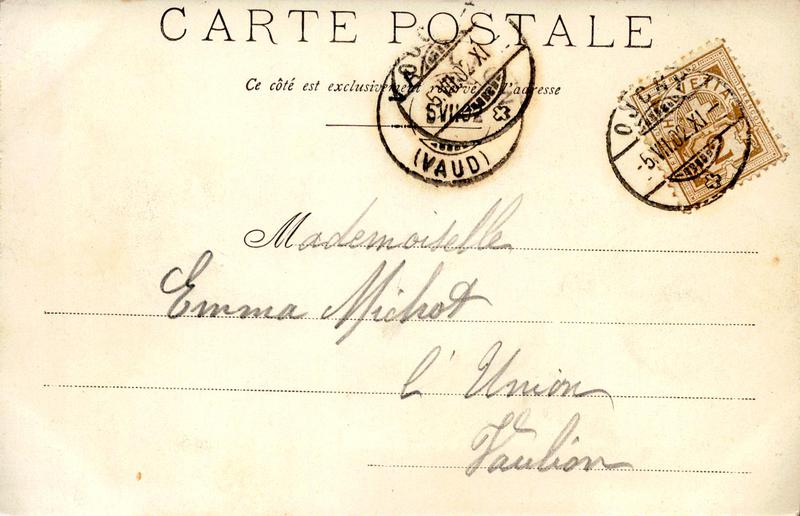 CARTE POSTALE
Ce côté est exclusivement réservé à l'adresse
5 VII 02
-5.VII.02-XI
(VAUD)
-5.VII.02-XI
Mademoiselle
Emma Michot
l'Union
Vaulion